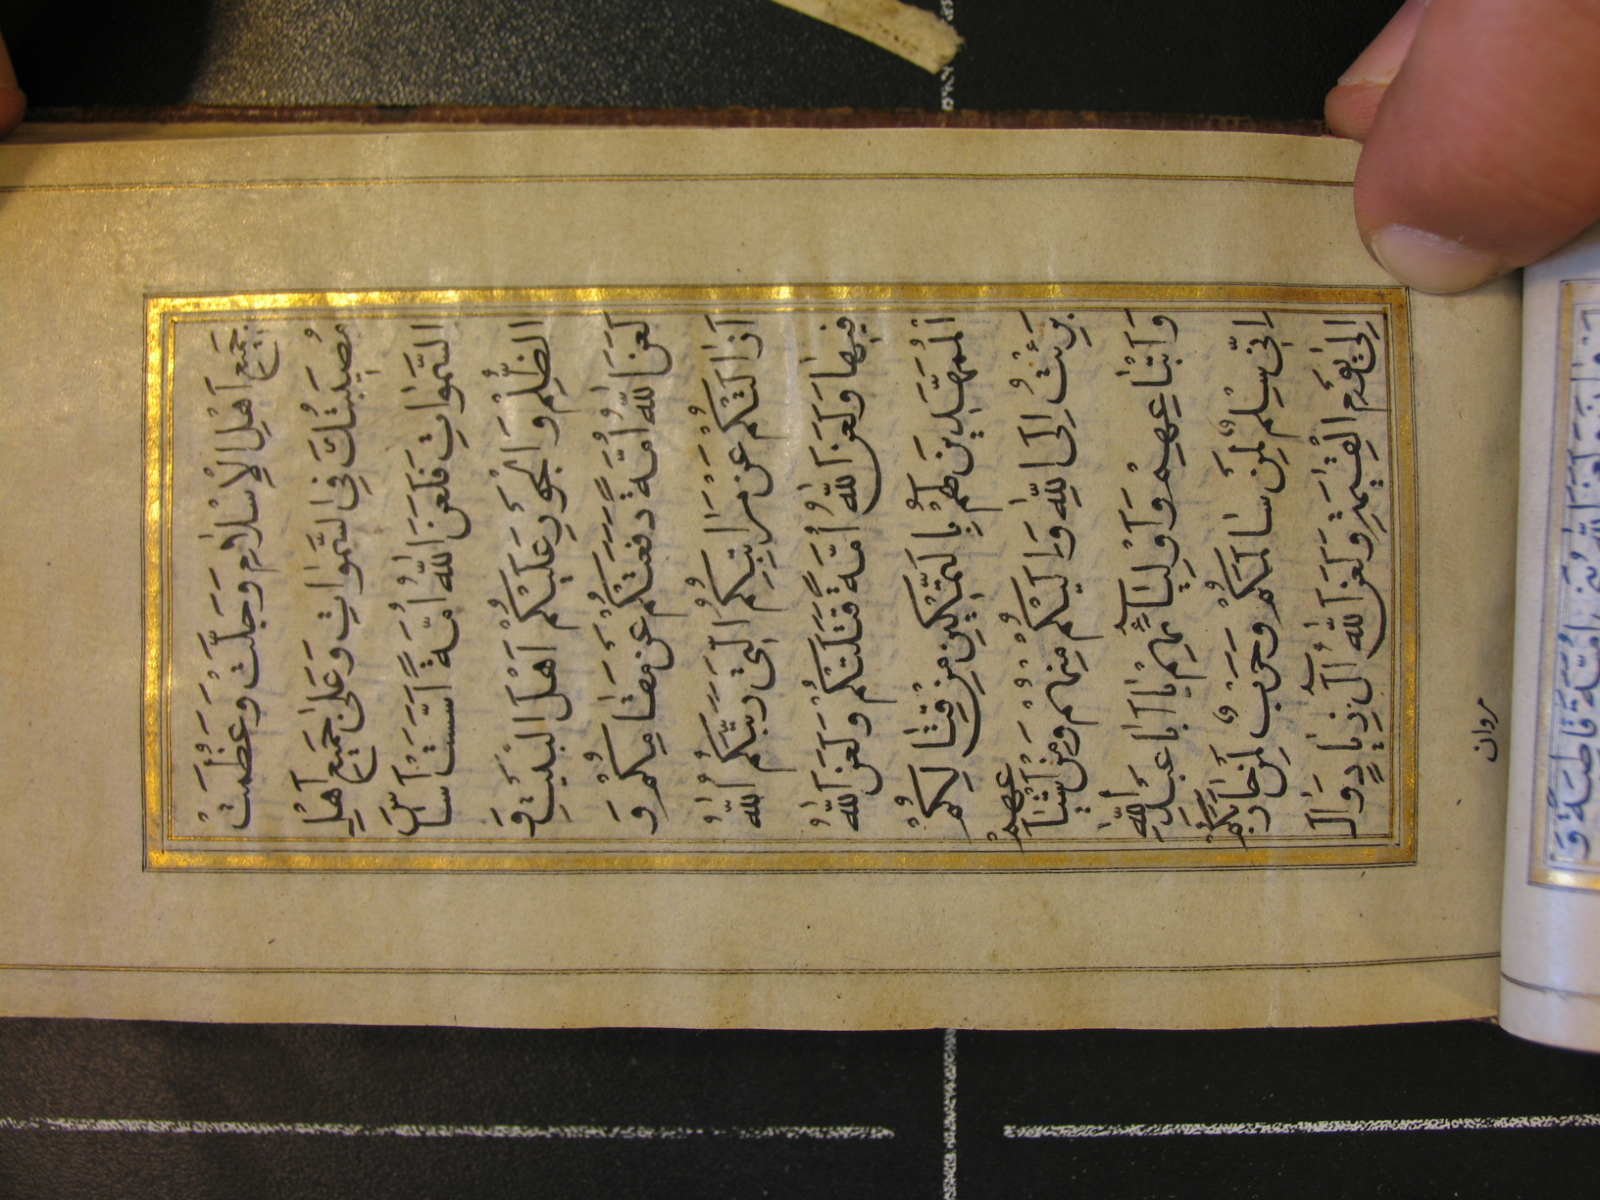 جَمِيعِ اَهْلِ الْاِسْلَامِ وَجَلَّتْ وَعَظُمَتْ
مُصِيبَتُكَ فِي السَّمٰوَاتِ وَعَلٰى جَمِيعِ اَهْلِ
السَّمٰوَاتِ فَلَعَنَ اللّٰهُ اُمَّةً اَسَّسَتْ اَسَاسَ
الظُّلْمِ وَالْجَوْرِ عَلَيْكُمْ اَهْلَ الْبَيْتِ وَ
لَعَنَ اللّٰهُ اُمَّةً دَفَعَتْكُمْ عَنْ مَقَامِكُمْ وَ
اَزَالَتْكُمْ عَنْ مَرَاتِبِكُمُ الَّتِي رَتَّبَكُمُ اللّٰهُ
فِيهَا وَلَعَنَ اللّٰهُ اُمَّةً قَتَلَتْكُمْ وَلَعَنَ اللّٰهُ
الْمُمَهِّدِينَ لَهُمْ بِالتَّمْكِينِ مِنْ قِتَالِكُمْ
بَرِئْتُ اِلَى اللّٰهِ وَاِلَيْكُمْ مِنْهُمْ وَمِنْ اَشْيَاعِهِمْ
وَاَتْبَاعِهِمْ وَاَوْلِيَآئِهِمْ يَا اَبَا عَبْدِ اللّٰهِ
اِنِّي سِلْمٌ لِمَنْ سَالَمَكُمْ وَحَرْبٌ لِمَنْ حَارَبَكُمْ
اِلٰى يَوْمِ الْقِيٰمَةِ وَلَعَنَ اللّٰهُ آلَ زِيَادٍ وَآلَ
مروان